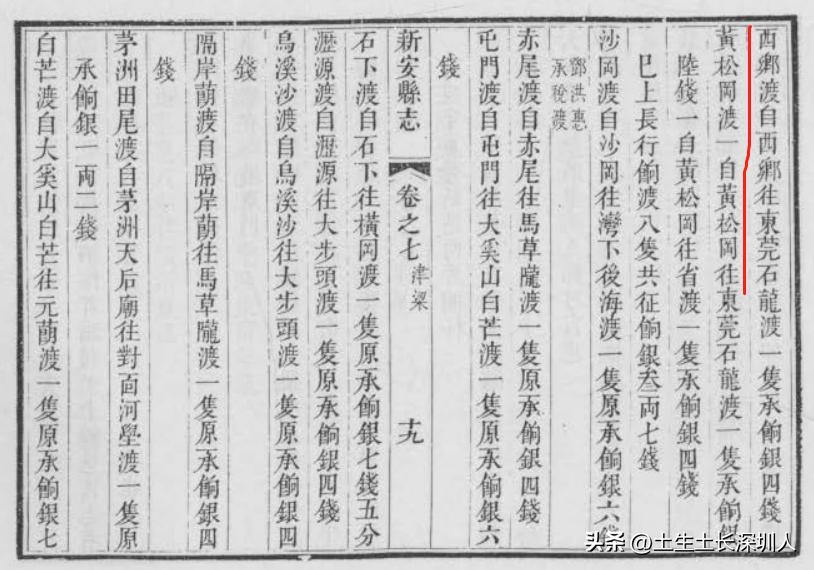 西鄉渡自西鄉往東莞石龍渡一隻承餉銀四錢
黃松岡渡一自黃松岡往東莞石龍渡一隻承餉銀
陸錢一自黃松岡往省渡一隻承餉銀四錢
巳上長行餉渡八隻共征餉銀叁両七錢
沙岡渡自沙岡往灣下後海渡一隻原承餉銀六錢
鄧洪惠
承稅渡
赤尾渡自赤尾往馬草隴渡一隻原承餉銀四錢
屯門渡自屯門往大奚山白芒渡一隻原承餉銀六
錢
新安縣志 卷之七 津梁 十九
石下渡自石下往橫岡渡一隻原承餉銀七錢五分
瀝源渡自瀝源往大步頭渡一隻原承餉銀四錢
烏溪沙渡自烏溪沙往大步頭渡一隻原承餉銀四
錢
隔岸蓢渡自隔岸蓢往馬草隴渡一隻原承餉銀四
錢
茅洲田尾渡自茅洲天后廟往對面河壆渡一隻原
承餉銀一両二錢
白芒渡自大奚山白芒往元蓢渡一隻原承餉銀七
头条 @土生土长深圳人